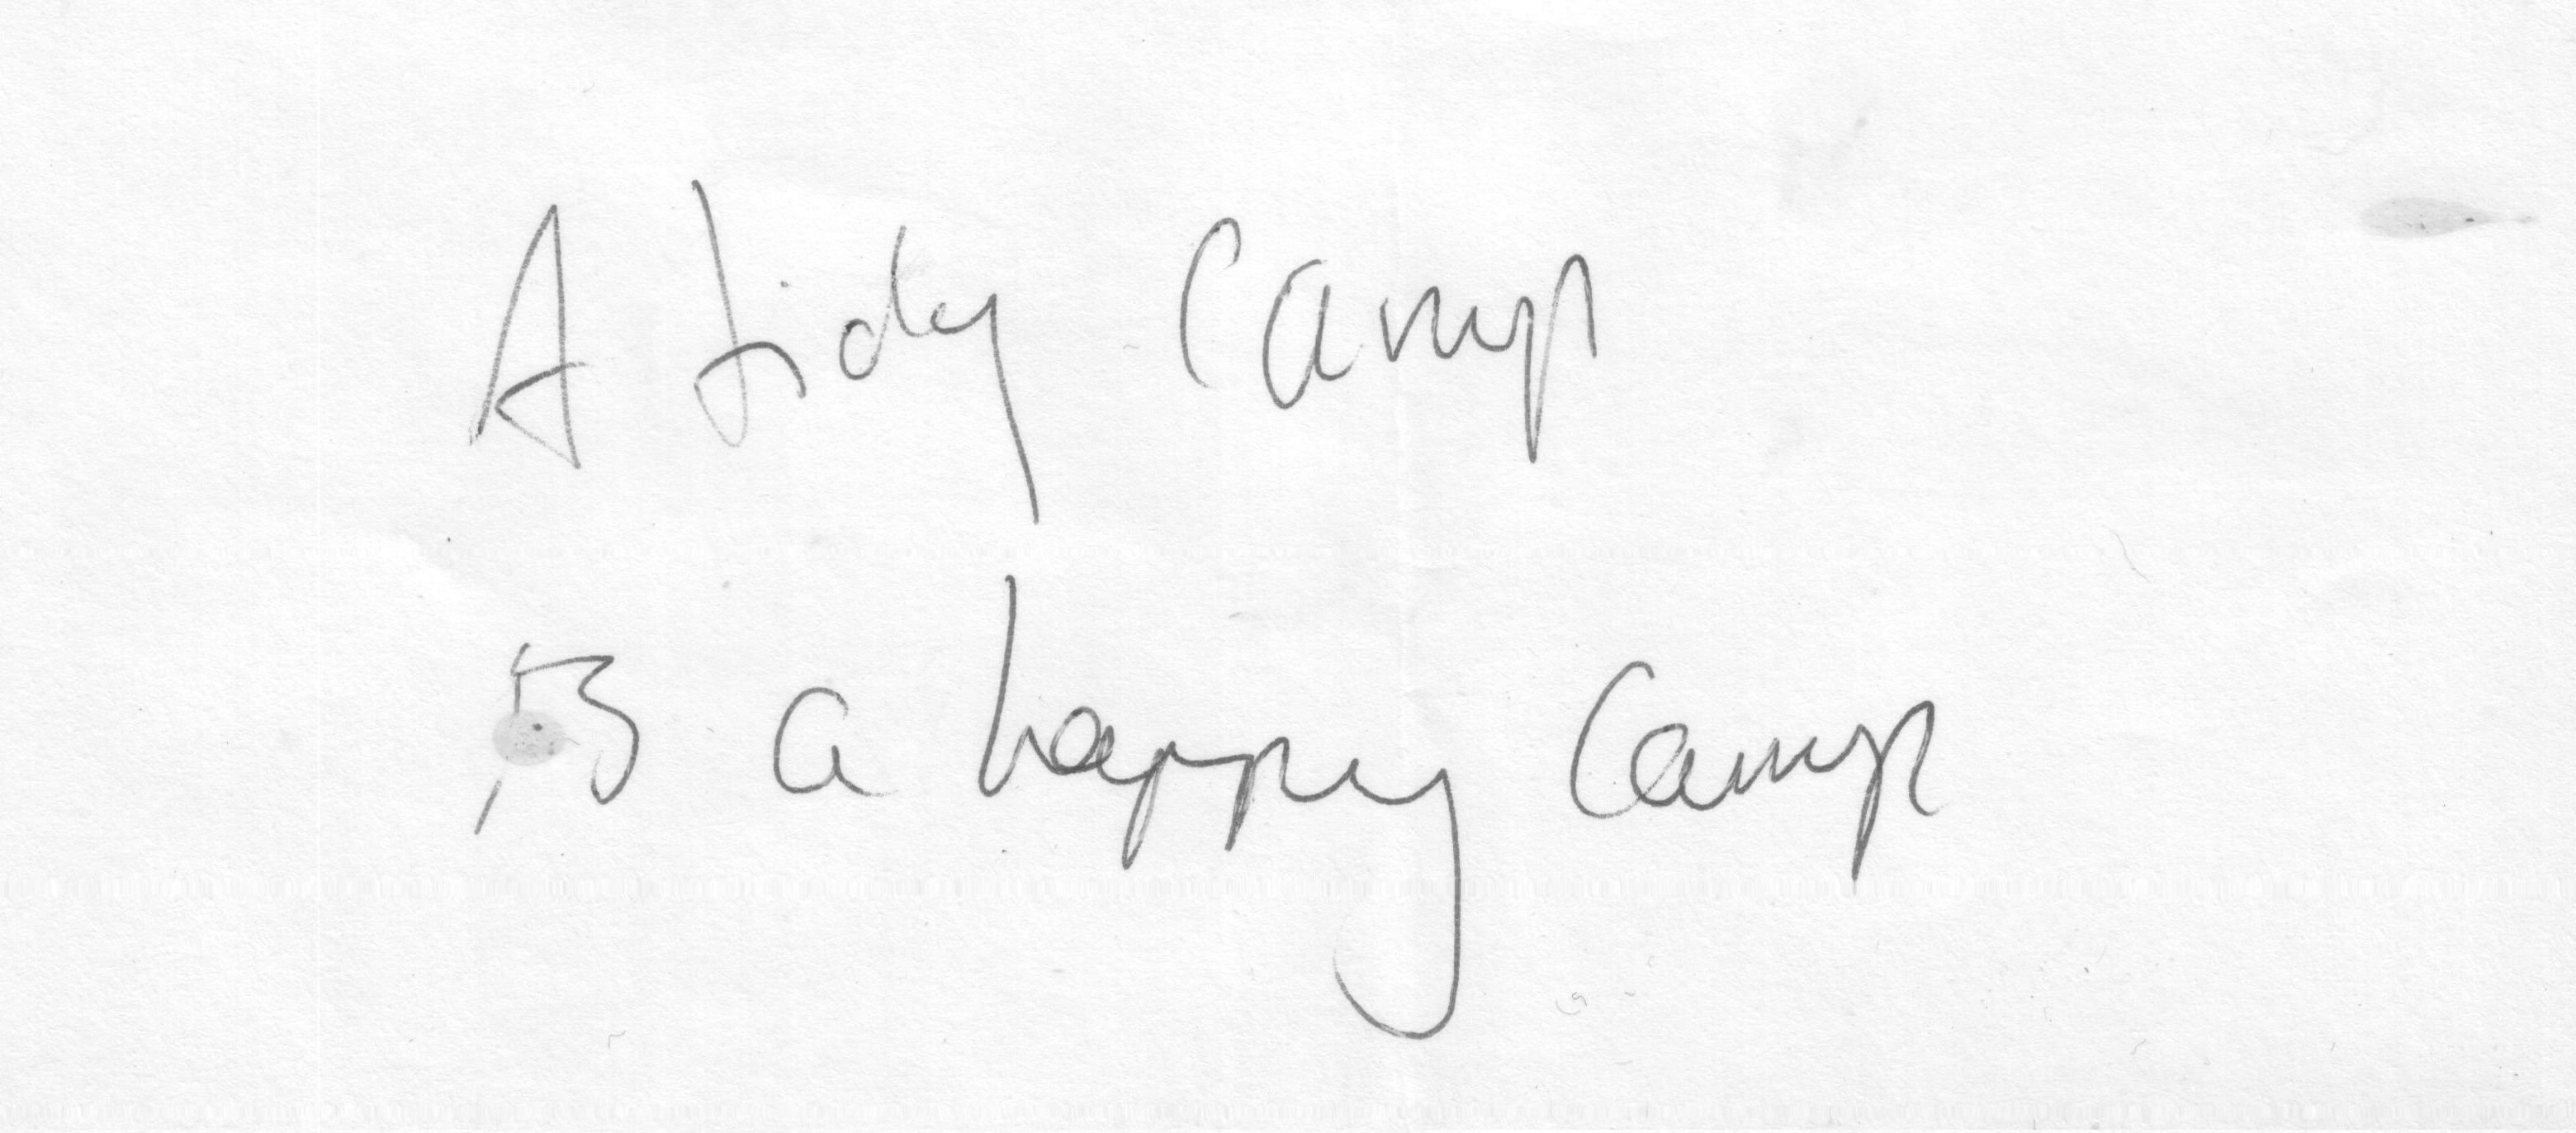 A tidy camp
is a happy camp